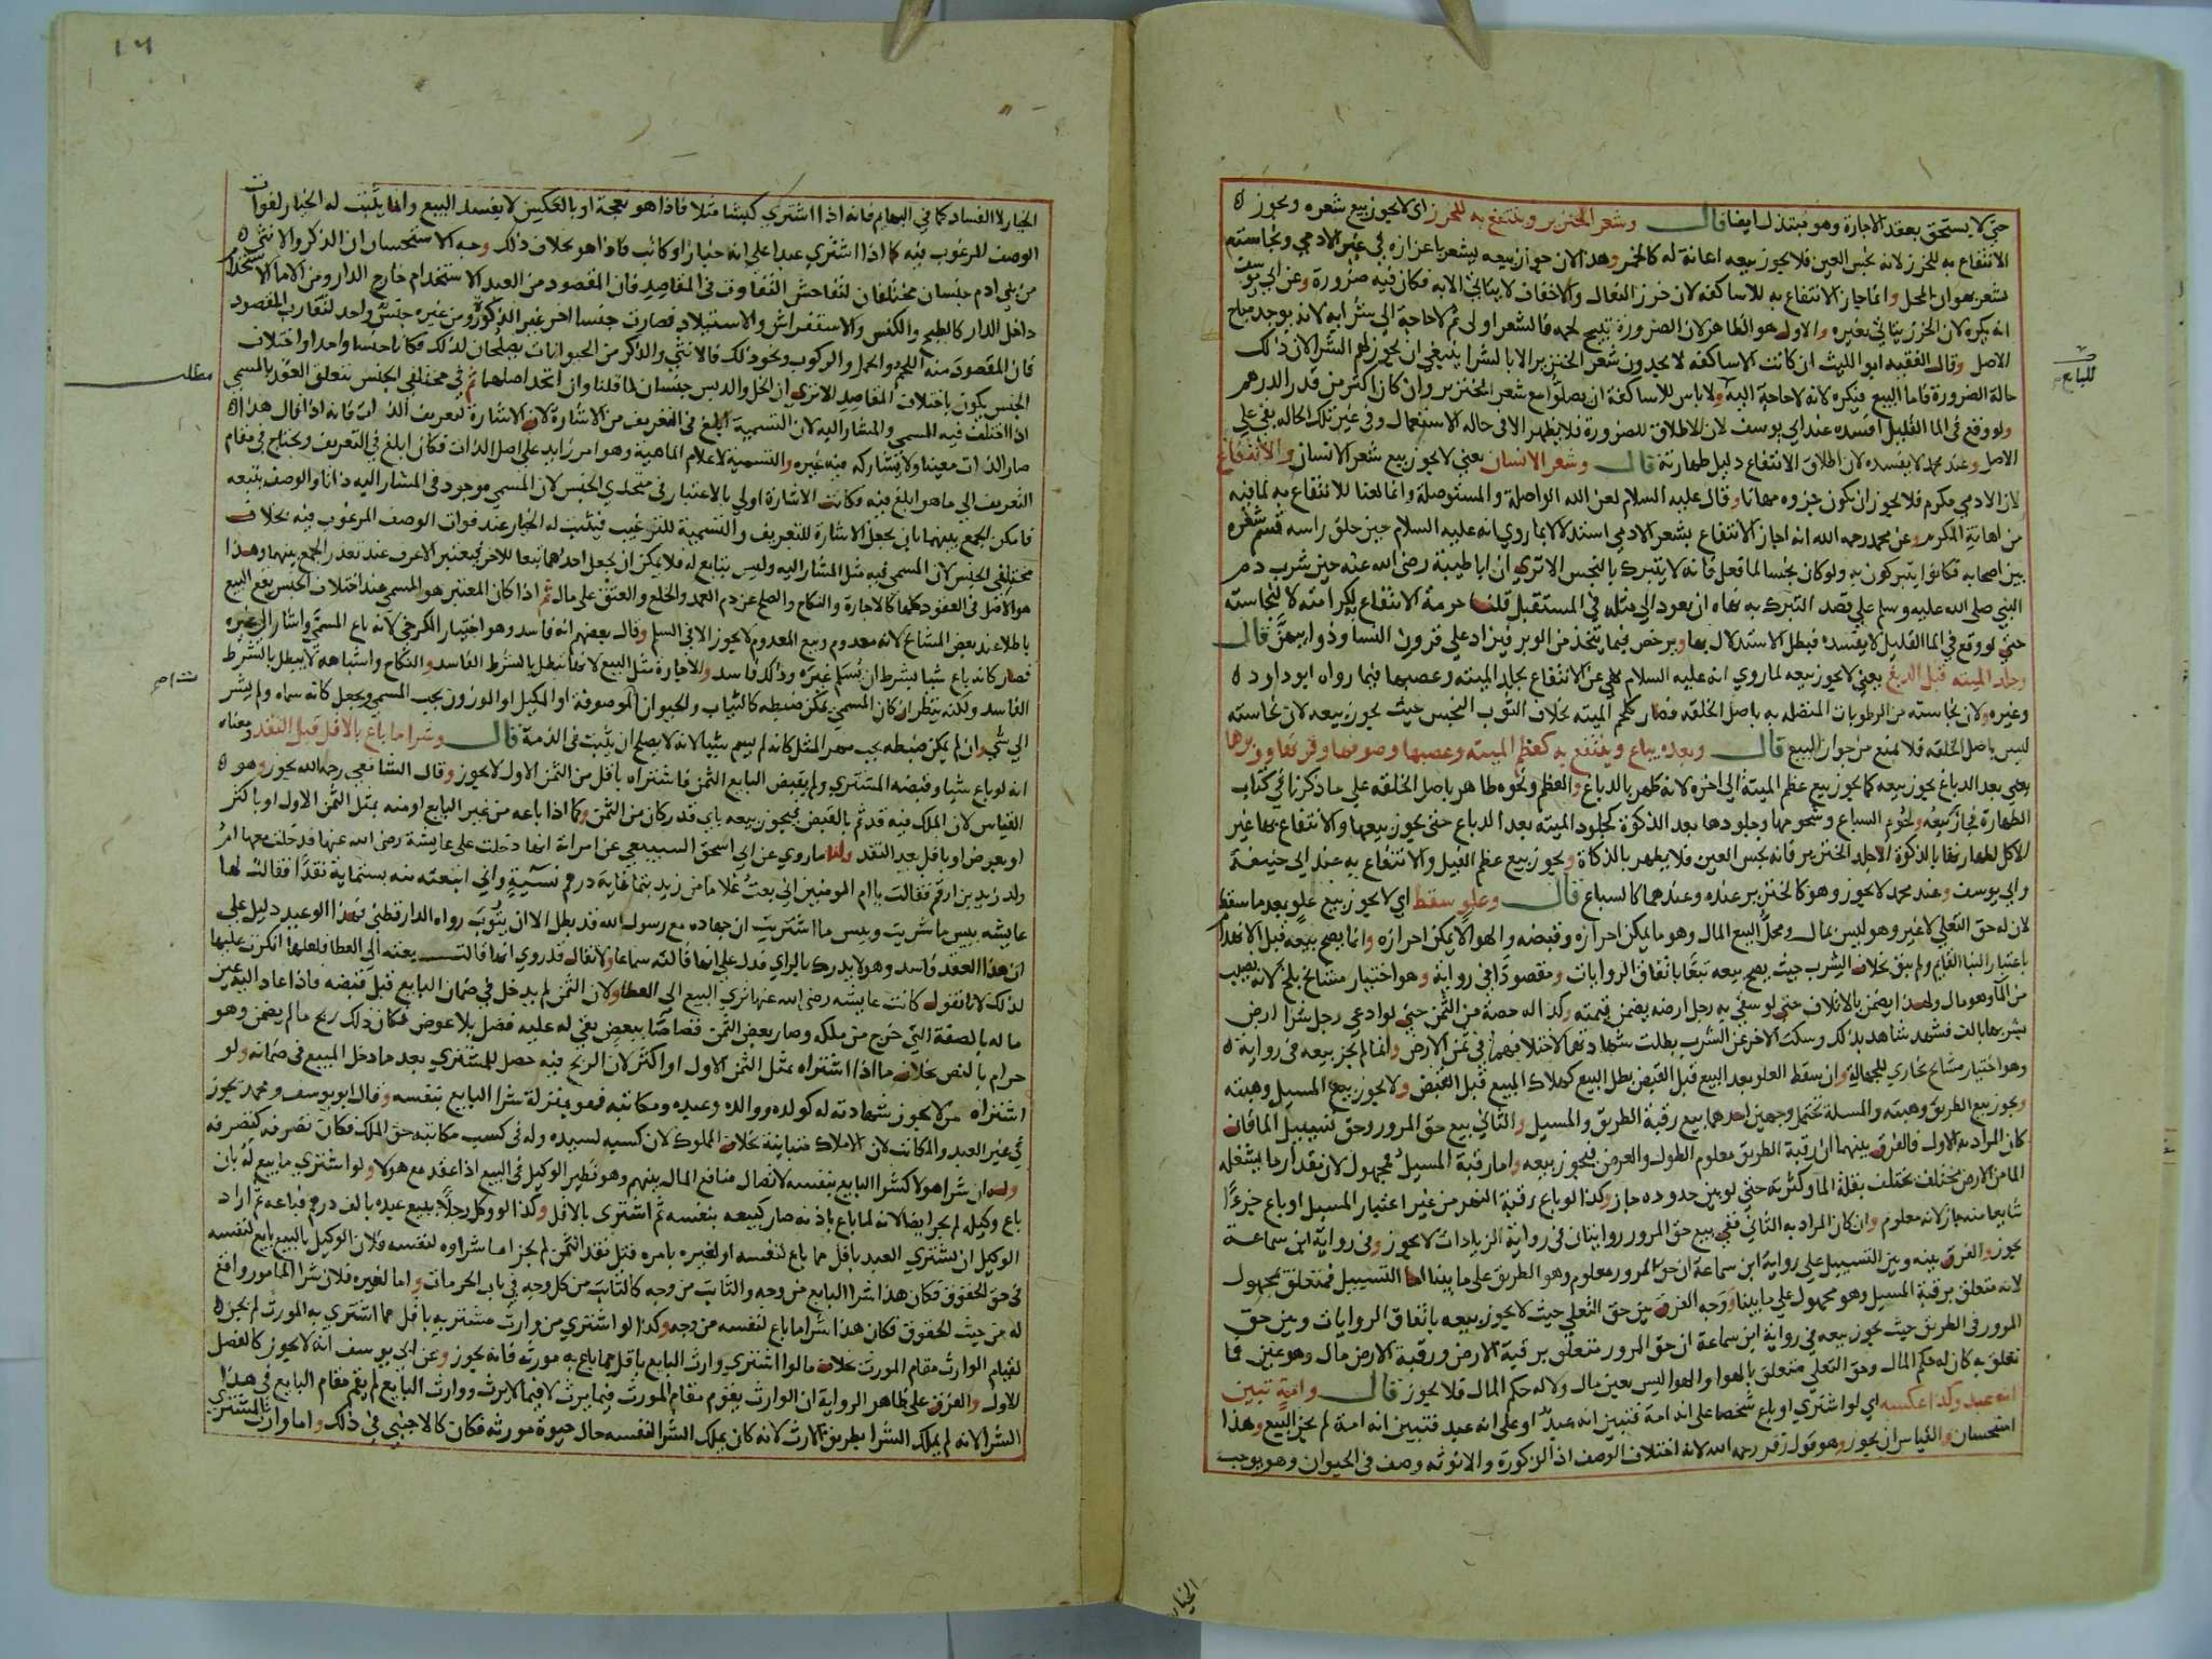 حتى لا يستحق بعقد الاجارة وهو مبتذل ايضا قال وشعر الخنزير وينتفع به للخرز اى لا يجوز بيع شعره ويجوز
الانتفاع به للخرز لانه نجس العين فلا يجوز بيعه اهانة له كالخمر وهذا لان جواز بيعه يشعر باعزازه وفي غير الادمي ونجاسته
تشعر بهوان المحل وانما جاز الانتفاع به للاساكفة لان خرز النعال والاخفاف لا يتاتى الا به فكان فيه ضرورة وعن ابي يوسف
انه يكره لان الخرز يتاتى بغيره والاول هو الظاهر لان الضرورة تبيح لحمه فالشعر اولى ثم لا حاجة الى شرايه لانه يوجد مباح
الاصل وقال الفقيه ابو الليث ان كانت الاساكفة لا يجدون شعر الخنزير الا بالشرا ينبغي ان يجوز لهم الشرا لان ذلك
حالة الضرورة فاما البيع فيكره لانه لا حاجة اليه ولا باس للاساكفة ان يصلوا مع شعر الخنزير وان كان اكثر من قدر الدرهم
ولو وقع في الما القليل افسده عند ابي يوسف لان الاطلاق للضرورة فلا يظهر الا في حاله الاستعمال وفي غير تلك الحاله بقى على
الاصل وعند محمد لا يفسده لان اطلاق الانتفاع دليل طهارته قال وشعر الانسان يعني لا يجوز بيع شعر الانسان والانتفاع
لان الادمي مكرم فلا يجوز ان يكون جزوه مهانا وقال عليه السلام لعن الله الواصلة والمستوصلة وانما لعنا للانتفاع به لما فيه
من اهانة المكرم وعن محمد رحمه الله انه اجاز الانتفاع بشعر الادمي استدلالا بما روي انه عليه السلام حين حلق راسه قسم شعره
بين اصحابه فكانوا يتبركون به ولو كان نجسا لما فعل فانه لا يتبرك بالنجس الا ترى ان ابا طيبة رضى الله عنه حين شرب دم
النبي صلى الله عليه وسلم على قصد التبرك به نهاه ان يعود الى مثله في المستقبل قلنا حرمة الانتفاع به لكرامته لا لنجاسته
حتى لو وقع في الما القليل لا يفسده فبطل الاستدلال بها ويرخص فيما يتخذ من الوبر فيزاد على قرون النسا وذوايبهن قال
وجلد الميته قبل الدبغ يعني لا يجوز بيعه لما روي انه عليه السلام نهي عن الانتفاع بجلد الميته وعصبها فيما رواه ابو داود
وغيره ولان نجاسته من الرطوبات المتصله به باصل الخلقه فصار كلحم الميته بخلاف الثوب النجس حيث يجوز بيعه لان نجاسته
ليس باصل الخلقه فلا تمنع من جواز البيع قال وبعده يباع وينتفع به كعظم الميته وعصبها وصوفها وقرنها ووبرها
يعني بعد الدباغ يجوز بيعه كما يجوز بيع عظم الميتة الى اخره لانه طهر بالدباغ والعظم ونحوه طاهر باصل الخلقه على ما ذكرنا في كتاب
الطهارة فجاز بيعه ولحوم السباع وشحومها وجلودها بعد الذكوة كجلود الميته بعد الدباغ حتى يجوز بيعها والانتفاع بها غير
الاكل لطهارتها بالذكوة الا جلد الخنزير فانه نجس العين فلا يطهر بالذكاة ويجوز بيع عظم الفيل والانتفاع به عند ابى حنيفة
وابي يوسف وعند محمد لا يجوز وهو كالخنزير عنده وعندهما كالسباع قال وعلو سقط اي لا يجوز بيع علو بعد ما سقط
لان له حق التعلي لا غير وهو ليس بمال ومحل البيع المال وهو ما يمكن احرازه وقبضه والهوا لا يمكن احرازه وانما يصح بيعه قبل الانهدام
باعتبار البنا القايم ولم يبق بخلاف الشرب حيث يصح بيعه تبعا باتفاق الروايات ومقصودا في رواية وهو اختيار مشايخ بلخ لانه نصيب
من الما وهو مال ولهذا يضمن بالاتلاف حتى لو سقى به رجل ارضه يضمن قيمته وكذا له حصة من الثمن حتى لو ادعى رجل شرا ارض
بشربها بالف فشهد شاهد بذلك وسكت الاخر عن الشرب بطلت شهادتهما لاختلافهما في ثمن الارض وانما لم يجز بيعه في رواية
وهو اختيار مشايخ بخاري للجهالة وان سقط العلو بعد البيع قبل القبض بطل البيع كهلاك المبيع قبل القبض ولا يجوز بيع المسيل وهبته
ويجوز بيع الطريق وهبته والمسلة تحتمل وجهين احدهما بيع رقبة الطريق والمسيل والثاني بيع حق المرور وحق تسييل الما فان
كان المراد به الاول فالفرق بينهما ان رقبة الطريق معلوم الطول والعرض فيجوز بيعه واما رقبة المسيل فمجهول لان قدر ما يشغله
الما من الارض مختلف يختلف بقلة الما وكثرته حتى لو بين حدوده جاز وكذا لو باع رقبة النهر من غير اعتبار المسيل او باع جزءا
شايعا منه جاز لانه معلوم وان كان المراد به الثاني ففي بيع حق المرور روايتان في رواية الزيادات لا يجوز وفى رواية ابن سماعة
يجوز والفرق بينه وبين التسييل على رواية ابن سماعة ان حق المرور معلوم وهو الطريق على ما بينا اما التسييل فمتعلق بمجهول
لانه متعلق برقبة المسيل وهو مجهول على ما بينا ووجه الفرق بين حق التعلي حيث لا يجوز بيعه باتفاق الروايات وبين حق
المرور في الطريق حيث يجوز بيعه في رواية ابن سماعة ان حق المرور متعلق برقبة الارض ورقبة الارض مال وهو عين فما
تعلق به كان له حكم المال وحق التعلي متعلق بالهوا والهوا ليس بعين مال ولا له حكم المال فلا يجوز قال وامة تبين
انه عبد وكذا عكسه اي لو اشترى او باع شخصا على انه امة فتبين انه عبد او على انه عبد فتبين انه امة لم يجز البيع وهذا
استحسان والقياس ان يجوز وهو قول زفر رحمه الله لانه اختلاف الوصف اذ الذكورة والانوثه وصف في الحيوان وهو يوجب
الخيار
للبايع
١٦
الخيار لا الفساد كما في البهايم فانه اذا اشترى كبشا مثلا فاذا هو نعجة او بالعكس لا يفسد البيع وانما يثبت له الخيار لفوات
الوصف المرغوب فيه كما اذا اشترى عبدا على انه خباز او كاتب فاذا هو بخلاف ذلك وجه الاستحسان ان الذكر والانثى
من بني ادم جنسان مختلفان لتفاحش التفاوت في المقاصد فان المقصود من العبد الاستخدام خارج الدار ومن الاما الاستخدام
داخل الدار كالطبخ والكنس والاستفراش والاستيلاد فصارت جنسا اخر غير الذكورة ومن غيره جنس واحد لتقارب المقصود
فان المقصود منه اللحم والحمل والركوب ونحو ذلك فالانثى والذكر من الحيوانات يصلحان لذلك فكانا جنسا واحدا واختلاف
الجنس يكون باختلاف المقاصد الا ترى ان الخل والدبس جنسان لما قلنا وان اتحد اصلهما ثم في مختلفي الجنس يتعلق العقد بالمسمي
اذا اختلف فيه المسمي والمشار اليه لان التسمية ابلغ في التعريف من الاشارة لان الاشارة لتعريف الذات فانه اذا قال هذا
صار الذات معينا ولا يشاركه فيه غيره والتسمية لاعلام الماهية وهو امر زايد على اصل الذات فكان ابلغ في التعريف ويحتاج في مقام
التعريف الى ما هو ابلغ فيه وكانت الاشارة اولى بالاعتبار في متحدي الجنس لان المسمي موجود في المشار اليه ذاتا والوصف يتبعه
فامكن الجمع بينهما بان يجعل الاشارة للتعريف والتسمية للترغيب فيثبت له الخيار عند فوات الوصف المرغوب فيه بخلاف
مختلفي الجنس لان المسمي فيه مثل المشار اليه وليس بتابع له فلا يمكن ان يجعل احدهما تبعا للاخر فيعتبر الاعرف عند تعذر الجمع بينهما وهذا
هو الاصل في العقود كلها كالاجارة والنكاح والصلح عن دم العمد والخلع والعتق على مال ثم اذا كان المعتبر هو المسمى عند اختلاف الجنس يقع البيع
باطلا عند بعض المشايخ لانه معدوم وبيع المعدوم لا يجوز الا في السلم وقال بعضهم انه فاسد وهو اختيار الكرخي لانه باع المسمى واشار الى غيره
فصار كانه باع شيا بشرط ان يسلم غيره وذلك فاسد والاجارة مثل البيع لانها تبطل بالشرط الفاسد والنكاح واشباهه لا يبطل بالشرط
الفاسد ولكنه ينظر ان كان المسمي يمكن ضبطه كالثياب والحيوان الموصوفة او المكيل او الموزون يجب المسمي ويجعل كانه سماه ولم يشر
الى شي وان لم يمكن ضبطه يجب مهر المثل كانه لم يسم شيا لانه لا يصلح ان يثبت في الذمة قال وشرا ما باع بالاقل قبل النقد ومعناه
انه لو باع شيا وقبضه المشتري ولم يقبض البايع الثمن فاشتراه باقل من الثمن الاول لا يجوز وقال الشافعي رحمه الله يجوز وهو
القياس لان الملك فيه قد تم بالقبض فيجوز بيعه باي قدر كان من الثمن وكما اذا باعه من غير البايع او منه بمثل الثمن الاول او باكثر
او بعرض او باقل بعد النقد ولنا ما روي عن ابي اسحق السبيعي عن امراة انها دخلت على عايشة رضى الله عنها فدخلت معها ام
ولد زيد بن ارقم فقالت يا ام المومنين اني بعت غلاما من زيد بثمانماية درهم نسية واني ابتعته منه بستماية نقدا فقالت لها
عايشه بيس ما شريت وبيس ما اشتريت ان جهاده مع رسول الله قد بطل الا ان يتوب رواه الدارقطني فهذا الوعيد دليل على
ان هذا العقد فاسد وهو لا يدرك بالراي فدل على انها قالته سماعا ولا يقال قد روي انها قالت بعته الى العطا فلعلها انكرت عليها
لذلك لانا نقول كانت عايشه رضى الله عنها تري البيع الى العطا ولان الثمن لم يدخل في ضمان البايع قبل قبضه فاذا عاد اليه عين
ماله بالصفة التي خرج من ملكه وصار بعض الثمن قصاصا ببعض بقي له عليه فضل بلا عوض فكان ذلك ربح ما لم يضمن وهو
حرام بالنص بخلاف ما اذا اشتراه بمثل الثمن الاول او اكثر لان الربح فيه حصل للمشتري بعد ما دخل المبيع في ضمانه ولو
اشتراه من لا يجوز شهادته له كولده ووالده وعبده ومكاتبه فهو بمنزلة شرا البايع بنفسه وقال ابو يوسف ومحمد يجوز
في غير العبد والمكاتب لان الاملاك متباينة بخلاف المملوك لان كسبه لسيده وله في كسب مكاتبه حق الملك فكان تصرفه كتصرفه
وله ان شرا هولا كشرا البايع بنفسه لاتصال منافع المال بينهم وهو نظير الوكيل في البيع اذا عقد مع هولا ولو اشترى ما بيع له بان
باع وكيله لم يجز ايضا لانه لما باع باذنه صار كبيعه بنفسه ثم اشترى بالاقل وكذا لو وكل رجلا ببيع عبده بالف درهم فباعه ثم اراد
الوكيل ان يشتري العبد باقل مما باع لنفسه او لغيره بامره قبل نقد الثمن لم يجز اما شراوه لنفسه فلان الوكيل بالبيع بايع لنفسه
في حق الحقوق فكان هذا شرا البايع من وجه والثابت من وجه كالثابت من كل وجه في باب الحرمات واما لغيره فلان شرا المامور واقع
له من حيث الحقوق فكان هذا شرا ما باع لنفسه من وجه وكذا لو اشترى من وارث مشتريه باقل مما اشترى به المورث لم يجز
لقيام الوارث مقام المورث بخلاف ما لو اشتري وارث البايع باقل مما باع به مورثه فانه يجوز وعن ابي يوسف انه لا يجوز كالفصل
الاول والفرق على ظاهر الرواية ان الوارث يقوم مقام المورث فيما يرث لا فيما لا يرث ووارث البايع لم يقم مقام البايع في هذا
الشرا لانه لم يملك الشرا بطريق الارث لانه كان يملك الشرا لنفسه حال حيوة مورثه فكان كالاجنبي في ذلك واما وارث المشتري
مطلب